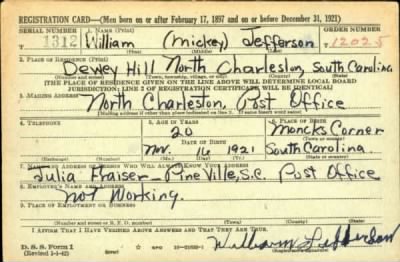 REGISTRATION CARD—(Men born on or after February 17, 1897 and on or before December 31, 1921)
SERIAL NUMBER 1. NAME (Print) ORDER NUMBER
1312 William (Mickey) Jefferson 12025
(First) (Middle) (Last)
2. PLACE OF RESIDENCE (Print)
Dewey Hill North Charleston, South Carolina
(Number and street) (Town, township, village, or city) (County) (State)
[THE PLACE OF RESIDENCE GIVEN ON THE LINE ABOVE WILL DETERMINE LOCAL BOARD
JURISDICTION; LINE 2 OF REGISTRATION CERTIFICATE WILL BE IDENTICAL]
3. MAILING ADDRESS
North Charleston, Post Office
[Mailing address if other than place indicated on line 2. If same insert word same]
4. TELEPHONE 5. AGE IN YEARS 6. PLACE OF BIRTH
20 Moncks Corner
DATE OF BIRTH (Town or county)
16 1921 South Carolina
(Exchange) (Number) (Mo.) (Day) (Yr.) (State or country)
7. NAME AND ADDRESS OF PERSON WHO WILL ALWAYS KNOW YOUR ADDRESS
Julia Fraiser - Pineville, S.C. Post Office
8. EMPLOYER'S NAME AND ADDRESS
Not Working.
9. PLACE OF EMPLOYMENT OR BUSINESS
(Number and street or R. F. D. number) (Town) (County) (State)
I AFFIRM THAT I HAVE VERIFIED ABOVE ANSWERS AND THAT THEY ARE TRUE.
D. S. S. Form 1
(Revised 1-1-42) GPO
William Jefferson